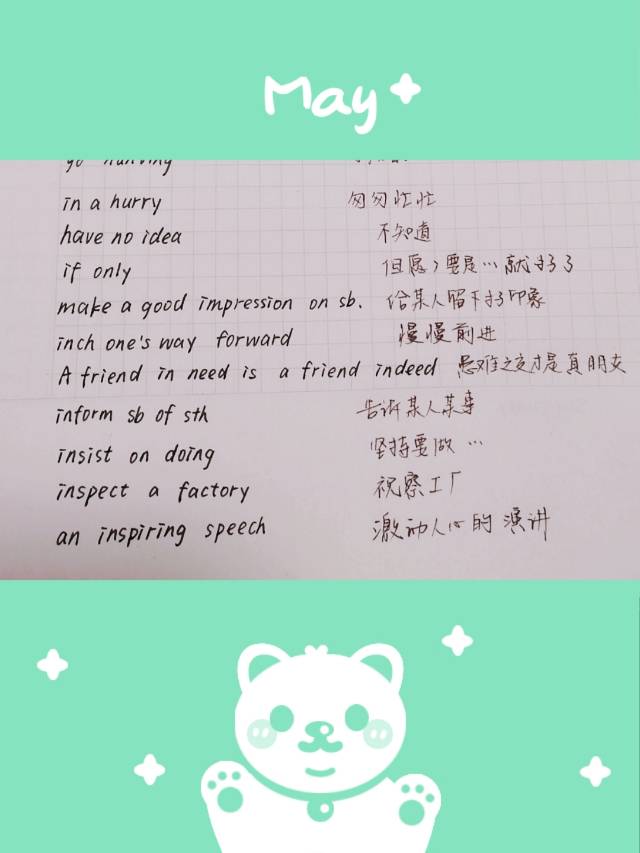 May
in a hurry 匆匆忙忙
have no idea 不知道
if only 但愿，要是…就好了
make a good impression on sb. 给某人留下好印象
inch one's way forward 慢慢前进
A friend in need is a friend indeed 患难之交才是真朋友
inform sb of sth 告诉某人某事
insist on doing 坚持要做…
inspect a factory 视察工厂
an inspiring speech 激动人心的演讲